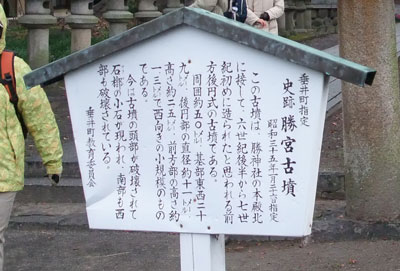 垂井町指定
史跡 勝宮古墳
昭和三十五年一月三十一日指定
この古墳は、勝神社の本殿北
に接して、六世紀後半から七世
紀初めに造られたと思われる前
方後円式の古墳である。
周囲約五〇㍍、基部東西二十
㍍、後円部の直径約十一㍍、
高さ約二・五㍍、前方部の高さ約
一・三㍍で西向きの小規模のもの
である。
今は古墳の頭部が破壊されて
石槨の小石が現われ、南部も西
部も破壊されている。
垂井町教育委員会